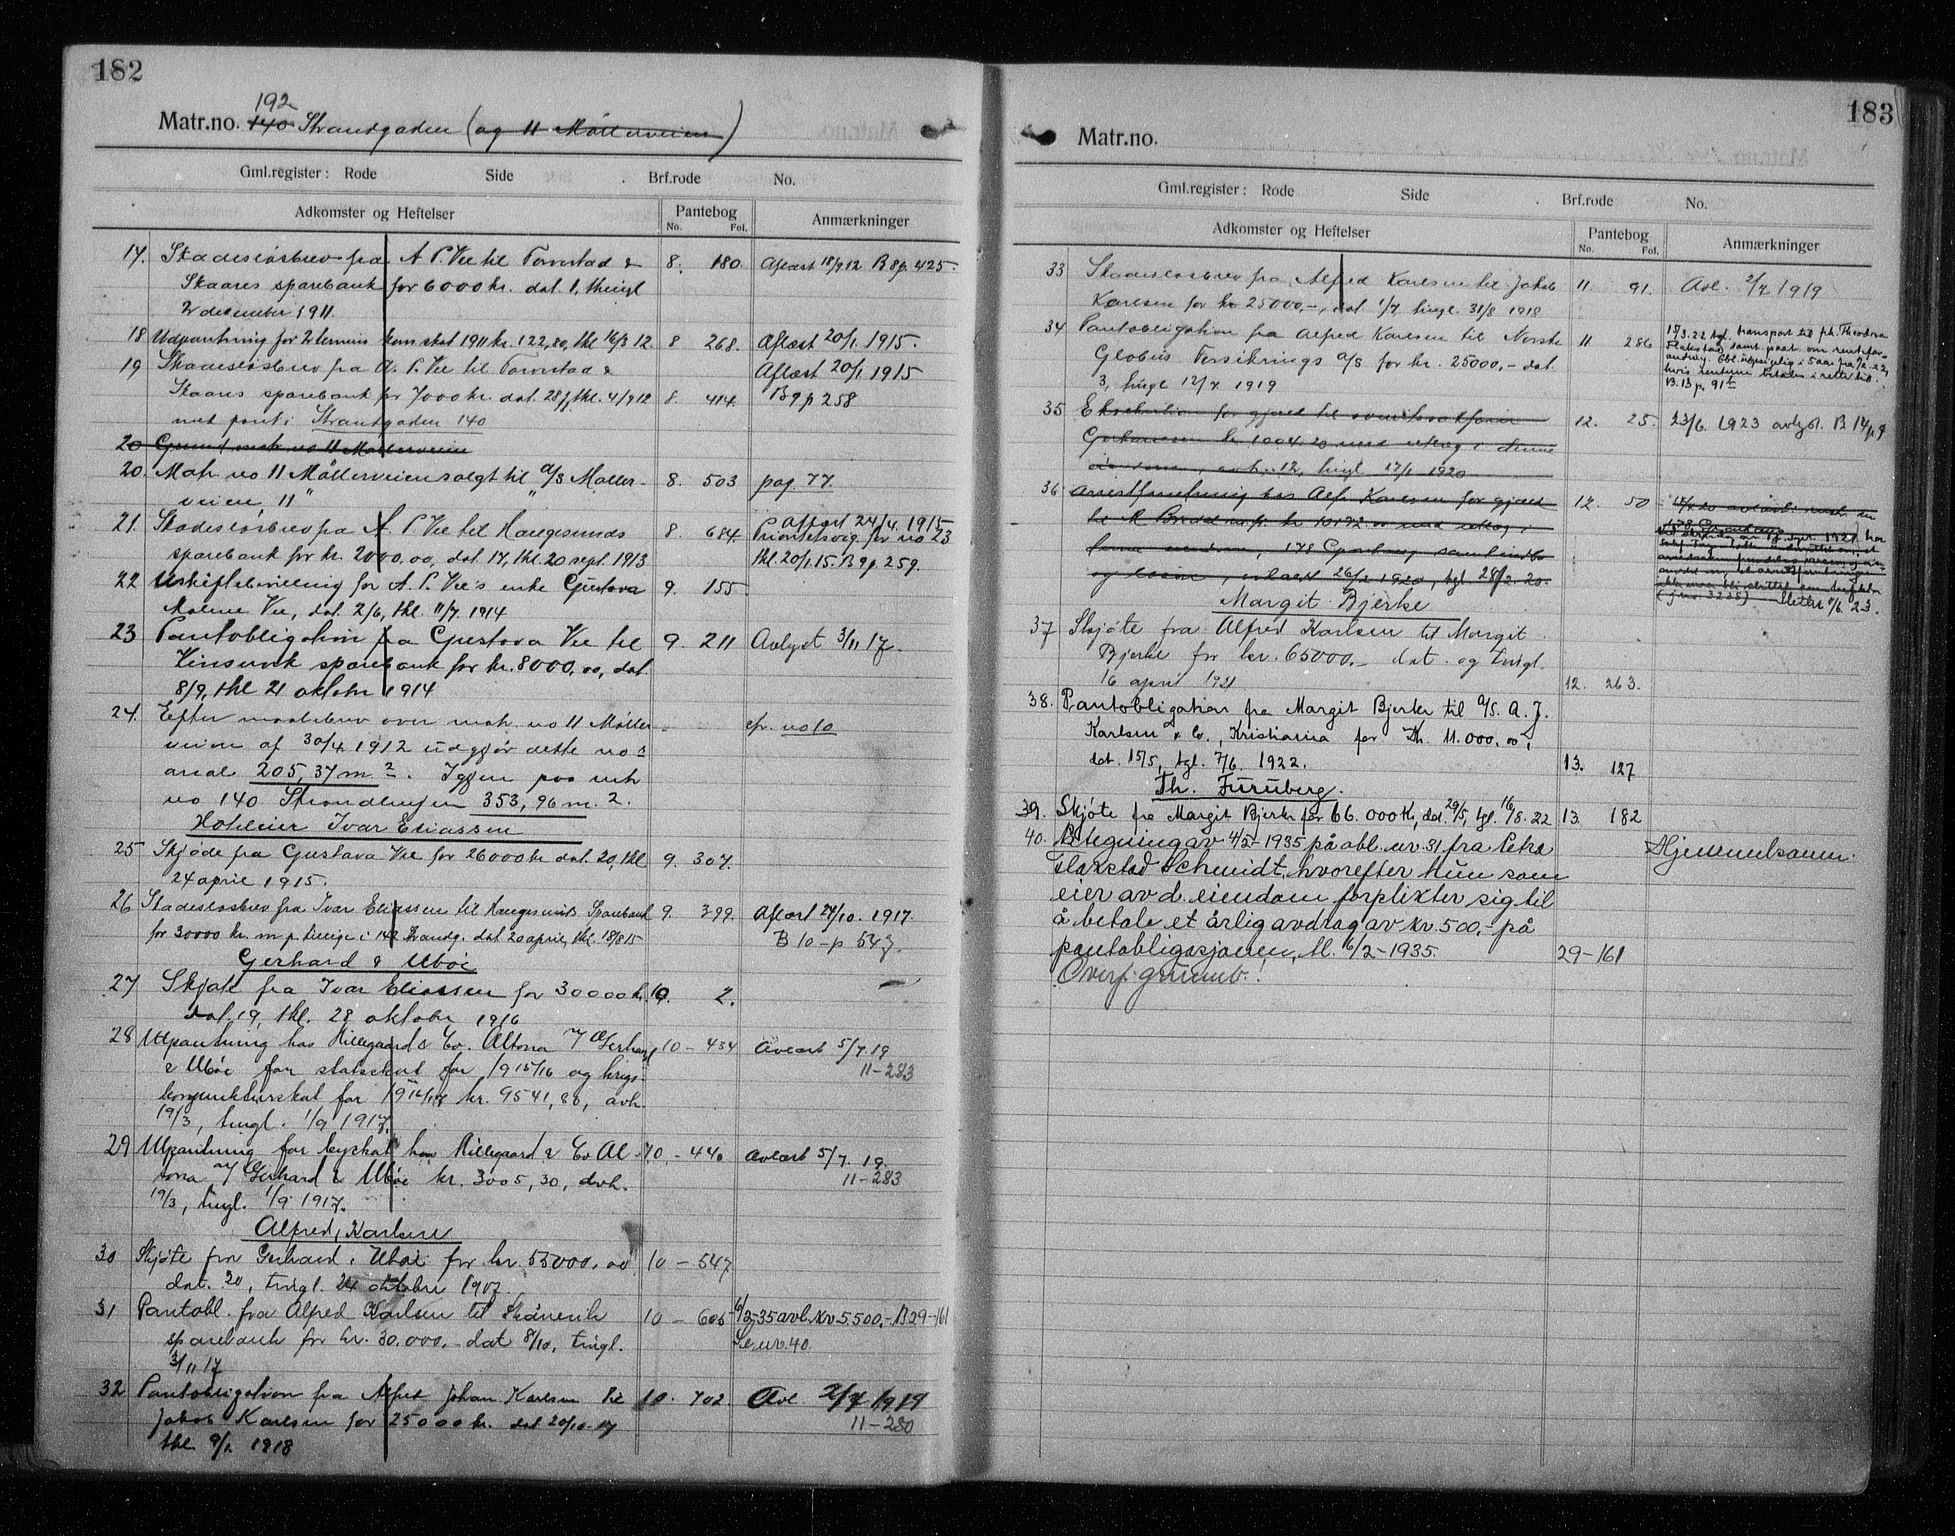 182
192
Matr.no. 140 Strandgaden (og 11 Möllerveien)
Gml.register: Rode Side Brf.rode No.
Adkomster og Heftelser Pantebog No. Fol. Anmærkninger
17. Skadesløsbrev fra A P. Vee til Torvestad & 8. 180. Aflæst 18/9 12 B 8 p. 425.
Skaares sparebank for 6000 kr. dat. 1, thingl
2 desember 1911.
18 Udpantning for 2 termins kom.skat 1911 kr. 122,80, thl 16/3 12. 8 268. Aflæst 20/1. 1915.
19 Skadesløsbrev fra A. P. Vee til Torvestad & Aflæst 20/1 1915
Skaares sparebank for 7000 kr. dat. 28/8, thl. 4/9 12 8. 414. B 9 p 258
med pant i Strandgaden 140
20 Grund matr no 11 Möllerveien
20. Matr no 11 Möllerveien solgt til A/S Möller- 8. 503 pag. 77.
veien 11"
21. Skadesløsbrev fra A P. Vee til Haugesunds 8. 684 Aflæst 24/4. 1915
sparebank for kr. 2000,00, dat. 17, thl. 20 sept. 1913 Prioritetsvig. for no 23
thl. 20/1. 15. B 9 p. 259.
22 Uskiftebevilling for A. P. Vee's enke Gustava 9. 155.
Malene Vee, dat. 2/6, thl. 11/7. 1914
23 Pantobligation fra Gustava Vee til 9. 211 Avlyst 3/11 17.
Vinsvik sparebank for kr. 8000,00, dat.
8/9, thl 21 oktobr 1914
24. Efter maalebrev over matr. no 11 Möller- cfr. no 10
veien af 30/4 1912 udgjør dette no s
areal 205,37 m.2. Igjen paa mtr
no 140 Strandgaden 353,96 m. 2.
Hoteleier Ivar Eliassen
25 Skjøde fra Gustava Vee for 26000 kr dat. 20, thl 9. 307.
24 april 1915.
26 Skadesløsbrev fra Ivar Eliassen til Haugesunds Sparebank 9. 399. Aflæst 24/10. 1917.
for 30000 kr. m p tillige i 142 Strandg. dat 20 april, thl. 18/8 15 B 10 - p 547.
Gerhard & Uboe
27 Skjøte fra Ivar Eliassen for 30000 kr. 10. 2.
dat. 19, thl. 28 oktobr 1916
28 Utpantning hos Killegaard & Co. Altona v/ Gerhard 10 - 434 Avlæst 5/7 19
& Uboe for statsskat for 1915/16 og krigs- 11 - 283
konjunkturskat for 1916/17 kr. 9541,80, avh.
19/3, tingl. 1/9 1917.
29 Utpantning for byskat hos Killegaard & Co Al- 10. - 440 Avlæst 5/7. 19.
tona v/ Gerhard & Uboe kr. 3005,30, avh. 11 - 283
19/3, tingl. 1/9 1917.
Alfred Karlsen
30 Skjøte fra Gerhard & Uboe for kr. 55000,00 10 - 547
dat. 20, tingl. 24 oktobre 1917.
31 Pantobl. fra Alfred Karlsen til Skånevik 10 - 606 6/2-35 avl. kr 5.500,- B 29-161
sparebank for kr. 30.000,- dat 8/10, tingl. Se nr. 40.
3/11 17
32 Pantobligation fra Alfred Johan Karlsen til 10. 702 Avl. 2/7 1919
Jakob Karlsen for 25000 kr. dat 20/10-17 11 - 280
thl 9/1 1918
183
Matr.no.
Gml.register: Rode Side Brf.rode No.
Adkomster og Heftelser Pantebog No. Fol. Anmærkninger
33 Skadesløsbrev fra Alfred Karlsen til Jakob 11 91. Avl. 2/7 1919
Karlsen for kr 25000,-, dat 1/7 tingl. 31/8 1918
34 Pantobligation fra Alfred Karlsen til Norske 11 286 15/3.22 tgl. transport til frk. Theodora
Globus Forsikrings A/S for kr. 25000,- dat. Flakstad samt paat. om rentefor-
3, tingl 12/7. 1919 andring. Obl. uopsigelig i 5 aar fra 1/2.22,
hvis renterne betales i rette tid.
B. 13 p. 91
35 Eksekution for gjæld til overretssakfører 12. 25. 23/6. 1923 avlyst. B 14 p 9
kr 1004,20 med utlæg i denne
eiendom, avh. 12, tingl 17/1 1920
36 Arrestforretning hos Alf. Karlsen for gjæld 12. 50
til R. kr 10192,00 med utlæg i
denne eiendom, 178
og løsøre, avholdt 26/2 1920, tgl 28/2. 20.
(j.no. 3235) Slettes 11/6. 23.
Margit Bjerke
37 Skjøte fra Alfred Karlsen til Margit
Bjerke for kr. 65000,- dat. og tingl.
16 april 1921 12. 263.
38. Pantobligation fra Margit Bjerke til A/S. A. J.
Karlsen & Co., Kristiania for Kr. 11.000,00,
dat. 15/5, tgl. 7/6. 1922. 13. 127
Th. Furuberg.
39. Skjøte fra Margit Bjerke for 66.000 Kr, dat. 29/5, tgl. 16/8. 22 13. 182
40. Påtegning av 4/2-1935 på obl. nr 31 fra Petra Hjemmelsmann.
Flakstad Schmidt, hvorefter hun som
eier av d. eiendom forplikter sig til
å betale et årlig avdrag av kr. 500,- på
pantobligasjonen, tl. 6/2-1935. 29-161
Overf. grunnb.!